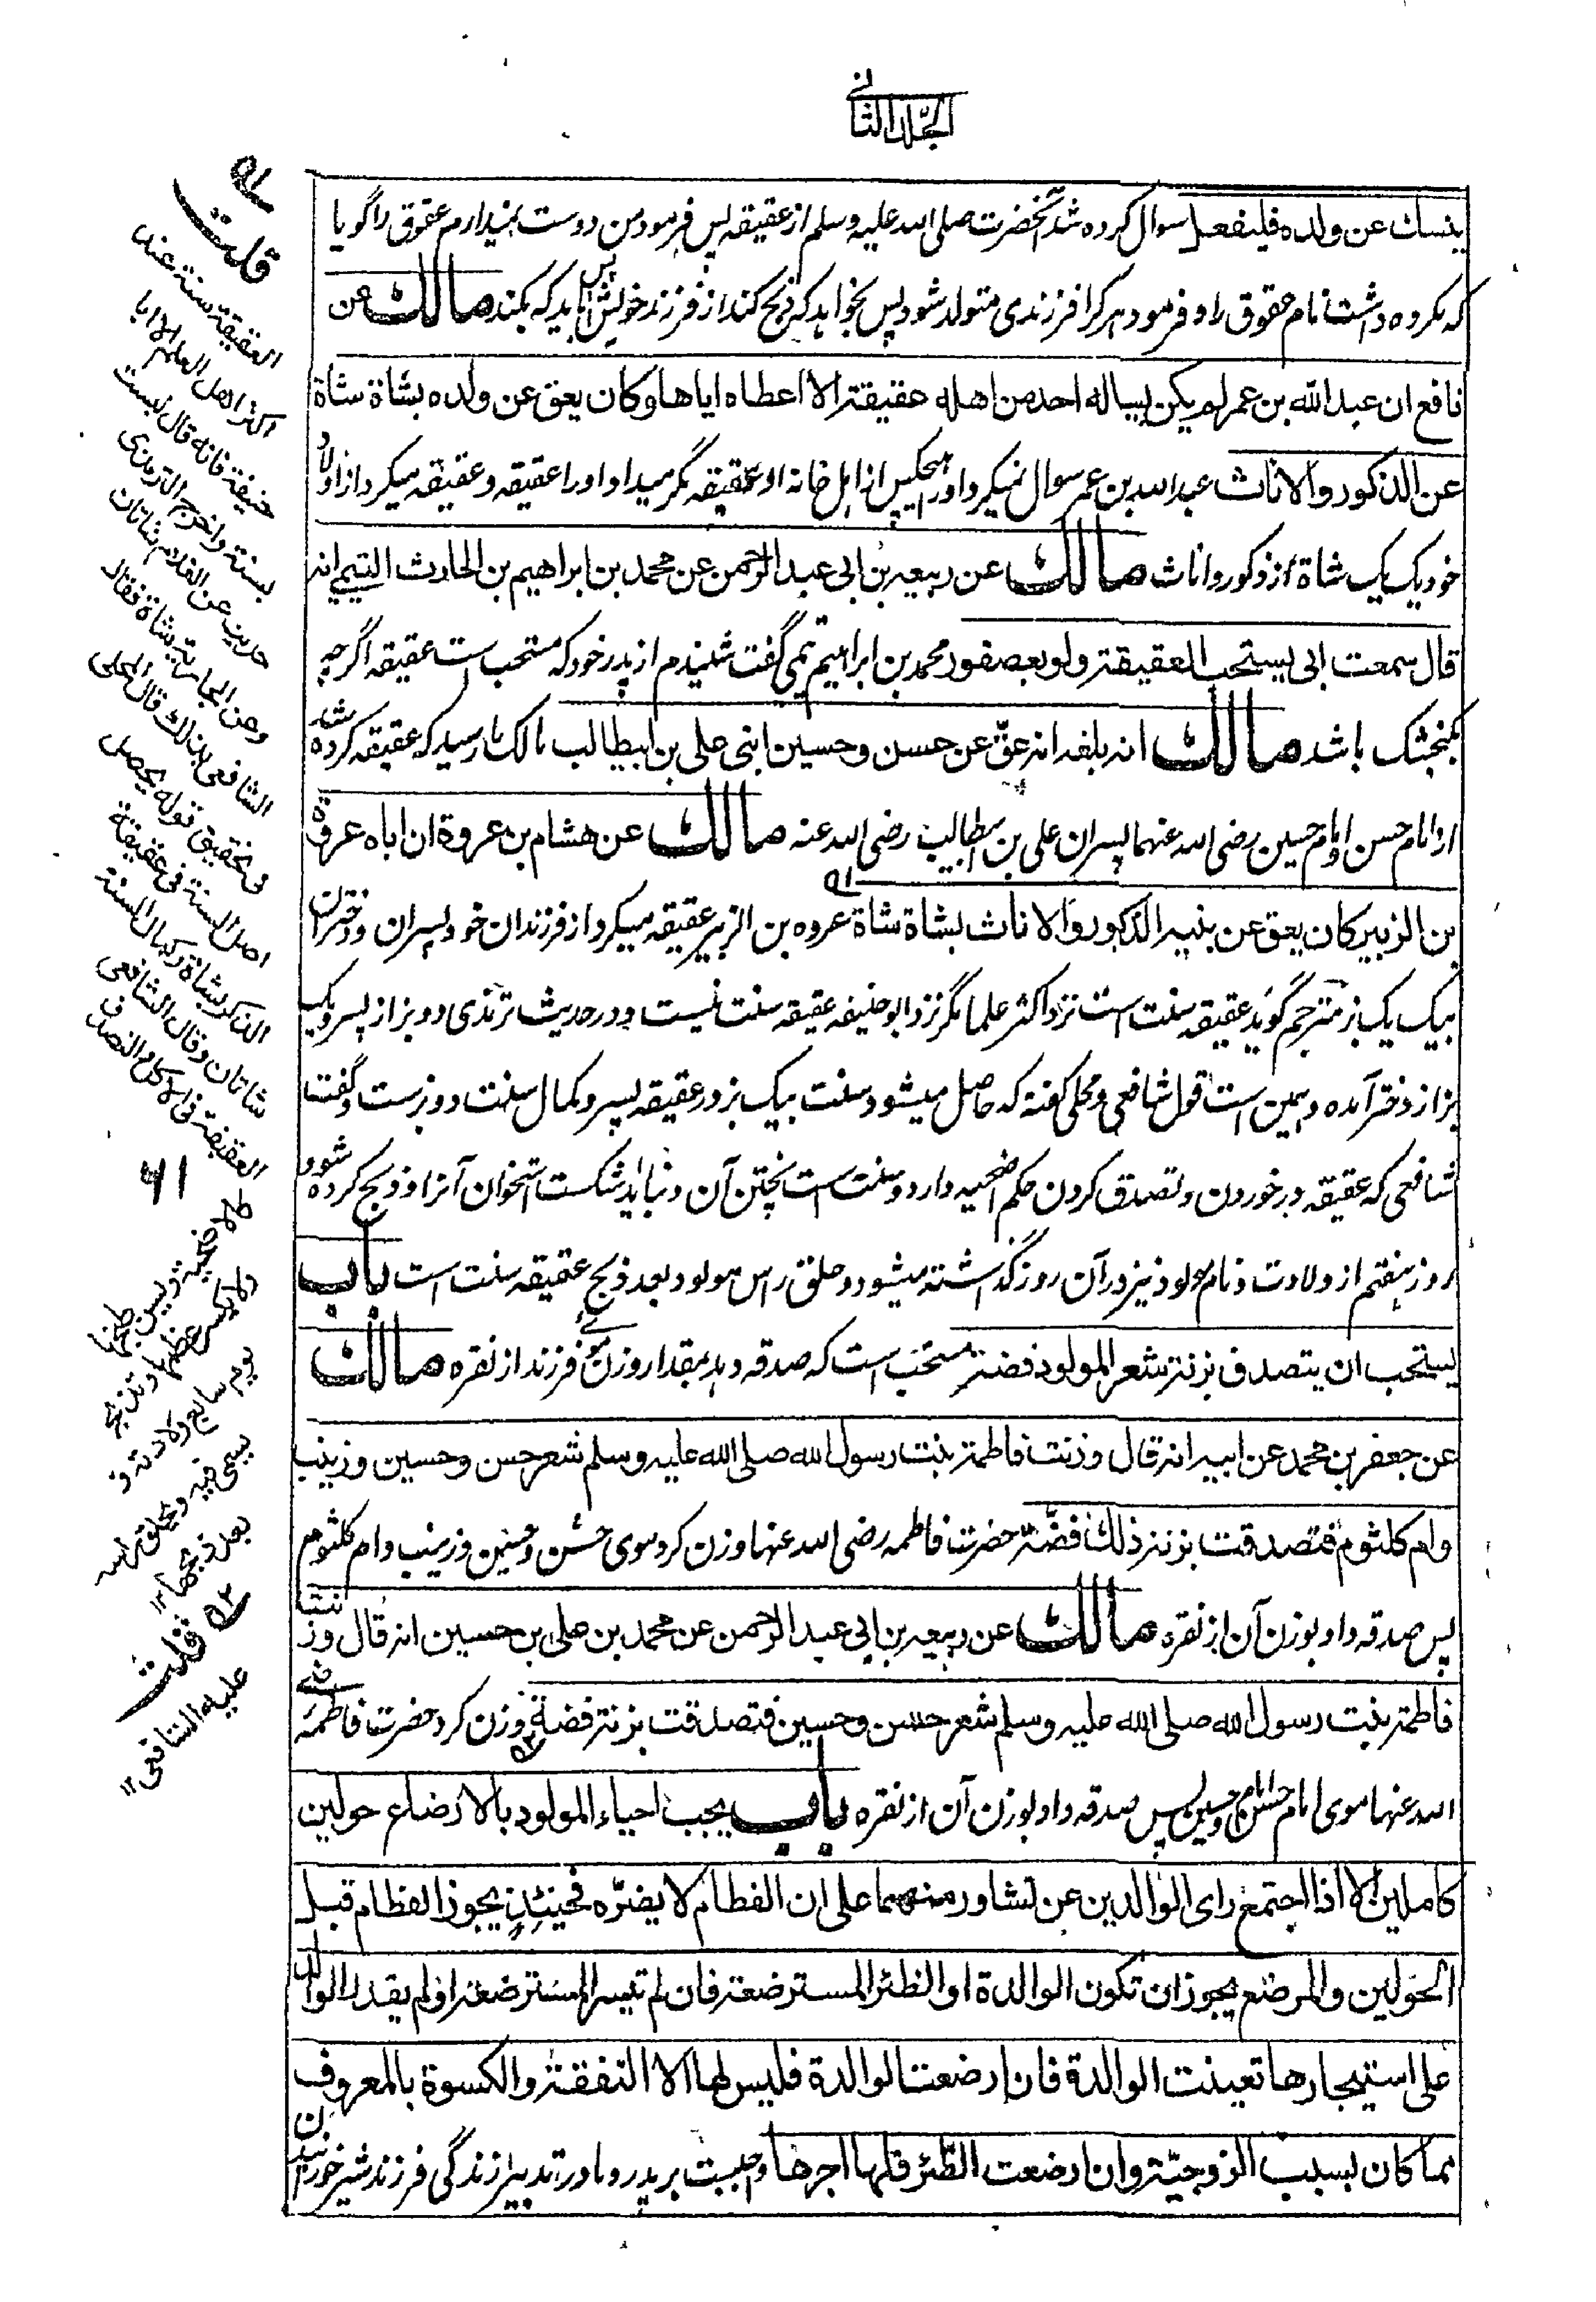 المجلد الثانی
ینسك عن ولده فلیفعل سوال کرده شد آنحضرت صلی الله علیه وسلم از عقیقه پس فرمود من دوست نمیدارم عقوق را گویا
که مکروه داشت نام عقوق را و فرمود هر کرا فرزندی متولد شود پس بخواهد که ذبح کند از فرزند خویش پس باید که بکند مالك عن
نافع ان عبد الله بن عمر لم یکن یساله احد من اهله عقیقة الا اعطاه ایاها وکان یعق عن ولده بشاة شاة
عن الذکور والاناث عبد الله بن عمر سوال نمیکرد او را هیچکس از اهل خانه او عقیقه مگر میداد او را عقیقه و عقیقه میکرد از اولاد
خود یک یک شاة از ذکور و اناث مالك عن ربیعه بن ابی عبد الرحمن عن محمد بن ابراهیم بن الحارث التیمی انه
قال سمعت ابی یستحب العقیقة ولو بعصفور محمد بن ابراهیم تیمی گفت شنیدم از پدر خود که مستحب است عقیقه اگرچه
بکنجشک باشد مالك انه بلغه انه عق عن حسن وحسین ابنی علی بن ابیطالب مالک را رسید که عقیقه کرده شد
از امام حسن و امام حسین رضی الله عنهما پسران علی بن ابیطالب رضی الله عنه مالك عن هشام بن عروة ان اباه عروة
بن الزبیر کان یعق عن بنیه الذکور والاناث بشاة شاة عروه بن الزبیر عقیقه میکرد از فرزندان خود پسران و دختران
بیک یک بز مترجم گوید عقیقه سنت است نزد اکثر علما مگر نزد ابو حنیفه عقیقه سنت نیست و در حدیث ترمذی دو بز از پسر و یک
بز از دختر آمده و همین است قول شافعی و محلی گفته که حاصل میشود سنت بیک بز در عقیقه پسر و کمال سنت دو بز ست و گفت
شافعی که عقیقه در خوردن و تصدق کردن حکم اضحیه دارد و سنت است پختن آن و نباید شکست استخوان آنرا و ذبح کرده شود
روز هفتم از ولادت و نام مولود نیز در آن روز گذاشته میشود و حلق راس مولود بعد ذبح عقیقه سنت است باب
یستحب ان یتصدق بزنة شعر المولود فضة مستحب است که صدقه دهد بمقدار وزن موئے فرزند از نقره مالك
عن جعفر بن محمد عن ابیه انه قال وزنت فاطمة بنت رسول الله صلی الله علیه وسلم شعر حسن وحسین وزینب
وام کلثوم فتصدقت بزنة ذلك فضة حضرت فاطمه رضی الله عنها وزن کرد موی حسن و حسین و زینب و ام کلثوم
پس صدقه داد بوزن آن از نقره مالك عن ربیعه بن ابی عبد الرحمن عن محمد بن علی بن حسین انه قال وزنت
فاطمة بنت رسول الله صلی الله علیه وسلم شعر حسن وحسین فتصدقت بزنته فضة وزن کرد حضرت فاطمه رضی
الله عنها موی امام حسن و امام حسین پس صدقه داد بوزن آن از نقره باب یجب احیاء المولود بالارضاع حولین
کاملین الا اذا اجتمع رای الوالدین عن تشاور منهما علی ان الفطام لا یضره فحینئذ یجوز الفطام قبل
الحولین والمرضع یجوز ان تکون الوالدة او الظئر المسترضعة فان لم تتیسر المسترضعة او لم یقدر الوالد
علی استیجارها تعینت الوالدة فان ارضعت الوالدة فلیس لها الا النفقة والکسوة بالمعروف
بما کان بسبب الزوجیة وان ارضعت الظئر فلها اجرها واجبست بر پدر و مادر تدبیر زندگی فرزند شیر خورانیدن
۵۱ قلت
العقیقة سنة عند
اکثر اهل العلم الا ابا
حنیفة فانه قال لیست
بسنة واخرج الترمذی
حدیث عن الغلام شاتان
وعن الجاریة شاة فقال
الشافعی بذلك قال المحلی
فی تحقیق قوله یحصل
اصل السنة فی عقیقة
الذکر بشاة وکمال السنة
شاتان وقال الشافعی
العقیقة فی الاکل والتصدق
۶۱
کالاضحیة ویسن طبخها
ولا یکسر عظمها وتذبح
یوم سابع ولادته و
یسمی فیه ویحلق راسه
بعد ذبحها ۱۲
۵۲ قلت
علیه الشافعی ۱۲